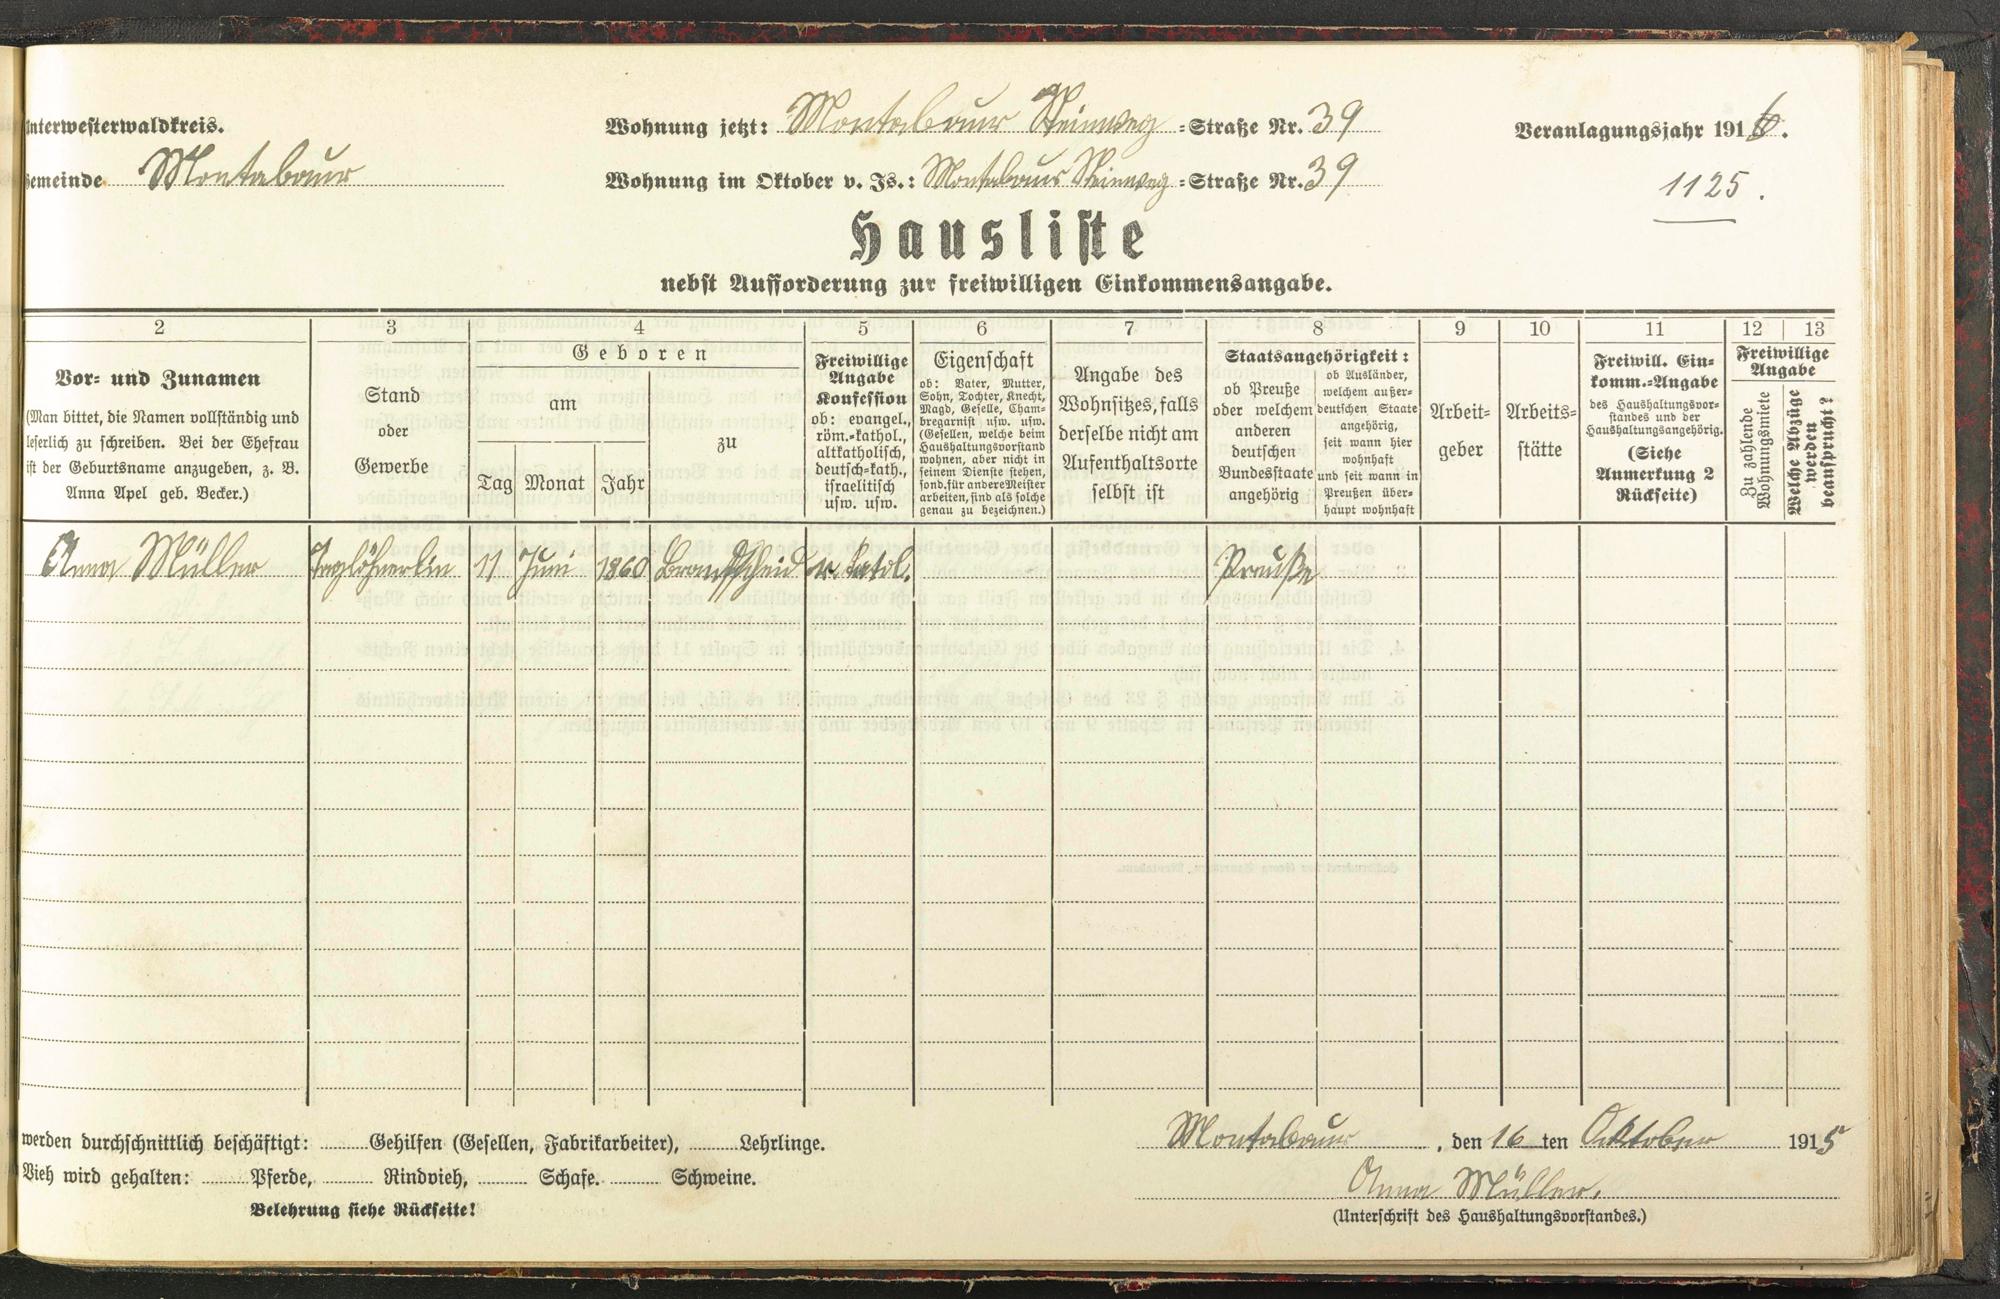 Unterwesterwaldkreis.
Wohnung jetzt: Montabaur Steinweg =Straße Nr. 39
Veranlagungsjahr 1916.
Gemeinde Montabaur
Wohnung im Oktober v. Js.: Montabaur Steinweg =Straße Nr. 39
1125.
Hausliste
nebst Aufforderung zur freiwilligen Einkommensangabe.
2 3 4 5 6 7 8 9 10 11 12 13
Vor= und Zunamen
(Man bittet, die Namen vollständig und
leserlich zu schreiben. Bei der Ehefrau
ist der Geburtsname anzugeben, z. B.
Anna Apel geb. Becker.)
Stand
oder
Gewerbe
Geboren
am
Tag Monat Jahr
zu
Freiwillige
Angabe
Konfession
ob: evangel.,
röm.=kathol.,
altkatholisch,
deutsch=kath.,
israelitisch
usw. usw.
Eigenschaft
ob: Vater, Mutter,
Sohn, Tochter, Knecht,
Magd, Geselle, Cham-
bregarnist usw. usw.
(Gesellen, welche beim
Haushaltungsvorstand
wohnen, aber nicht in
seinem Dienste stehen,
sond. für andere Meister
arbeiten, sind als solche
genau zu bezeichnen.)
Angabe des
Wohnsitzes, falls
derselbe nicht am
Aufenthaltsorte
selbst ist
Staatsangehörigkeit:
ob Preuße
oder welchem
anderen
deutschen
Bundesstaate
angehörig
ob Ausländer,
welchem außer-
deutschen Staate
angehörig,
seit wann hier
wohnhaft
und seit wann in
Preußen über-
haupt wohnhaft
Arbeit=
geber
Arbeits=
stätte
Freiwill. Ein-
komm.=Angabe
des Haushaltungsvor-
standes und der
Haushaltungsangehörig.
(Siehe
Anmerkung 2
Rückseite)
Freiwillige
Angabe
Zu zahlende
Wohnungsmiete
Welche Abzüge
werden
beansprucht?
Anna Müller Taglöhnerlin 11 Juni 1860 Brandscheid r. katol. Preuße
werden durchschnittlich beschäftigt: Gehilfen (Gesellen, Fabrikarbeiter), Lehrlinge.
Montabaur, den 16 ten Oktober 1915
Vieh wird gehalten: Pferde, Rindvieh, Schafe. Schweine.
Anna Müller.
Belehrung siehe Rückseite!
(Unterschrift des Haushaltungsvorstandes.)